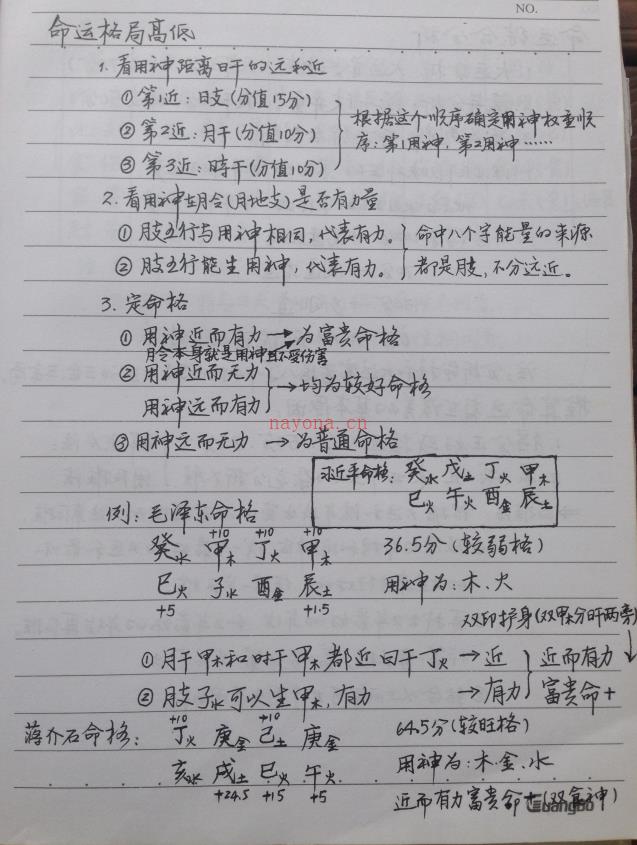 NO.
命运格局高低
1. 看用神距离日干的远和近
① 第1近：日支(分值15分)
② 第2近：月干(分值10分)
③ 第3近：時干(分值10分)
根据这个顺序确定用神权重顺
序：第1用神，第2用神……
2. 看用神在月令(月地支)是否有力量
① 月支五行与用神相同，代表有力。
② 月支五行能生用神，代表有力。
命中八个字能量的来源
都是月支，不分远近。
3. 定命格
① 用神近而有力→为富貴命格
月令本身就是用神且不受伤害
② 用神近而无力
用神远而有力
→均为较好命格
③ 用神远而无力 →为普通命格
nayona.cn
习近平命格: 癸水 戊土 丁火 甲木
巳火 午火 酉金 辰土
例：毛泽东命格
+10 +10 +10
癸水 甲木 丁火 甲木
36.5分(较弱格)
巳火 子水 酉金 辰土
用神为：木、火
+5 +1.5
双印护身(双甲木分旰两旁)
① 月干甲木和时干甲木都近日干丁火 →近
② 月支子水可以生甲木，有力 →有力
近而有力
富貴命+
蒋介石命格：
+10 +10
丁火 庚金 己土 庚金
64.5分(较旺格)
亥水 戌土 巳火 午火
用神为：木、金、水
+24.5 +15 +5
近而有力富貴命+(双食神)
Guangbo